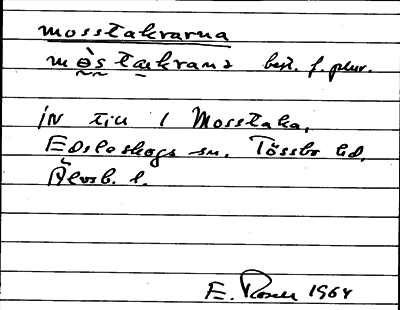 mosstakrarna
mòstakrana best. f. plur.
inv till / Mosstaka,
Edsleskogs sn. Tössbo hd.
Älvsb. l.
E. Rosen 1964